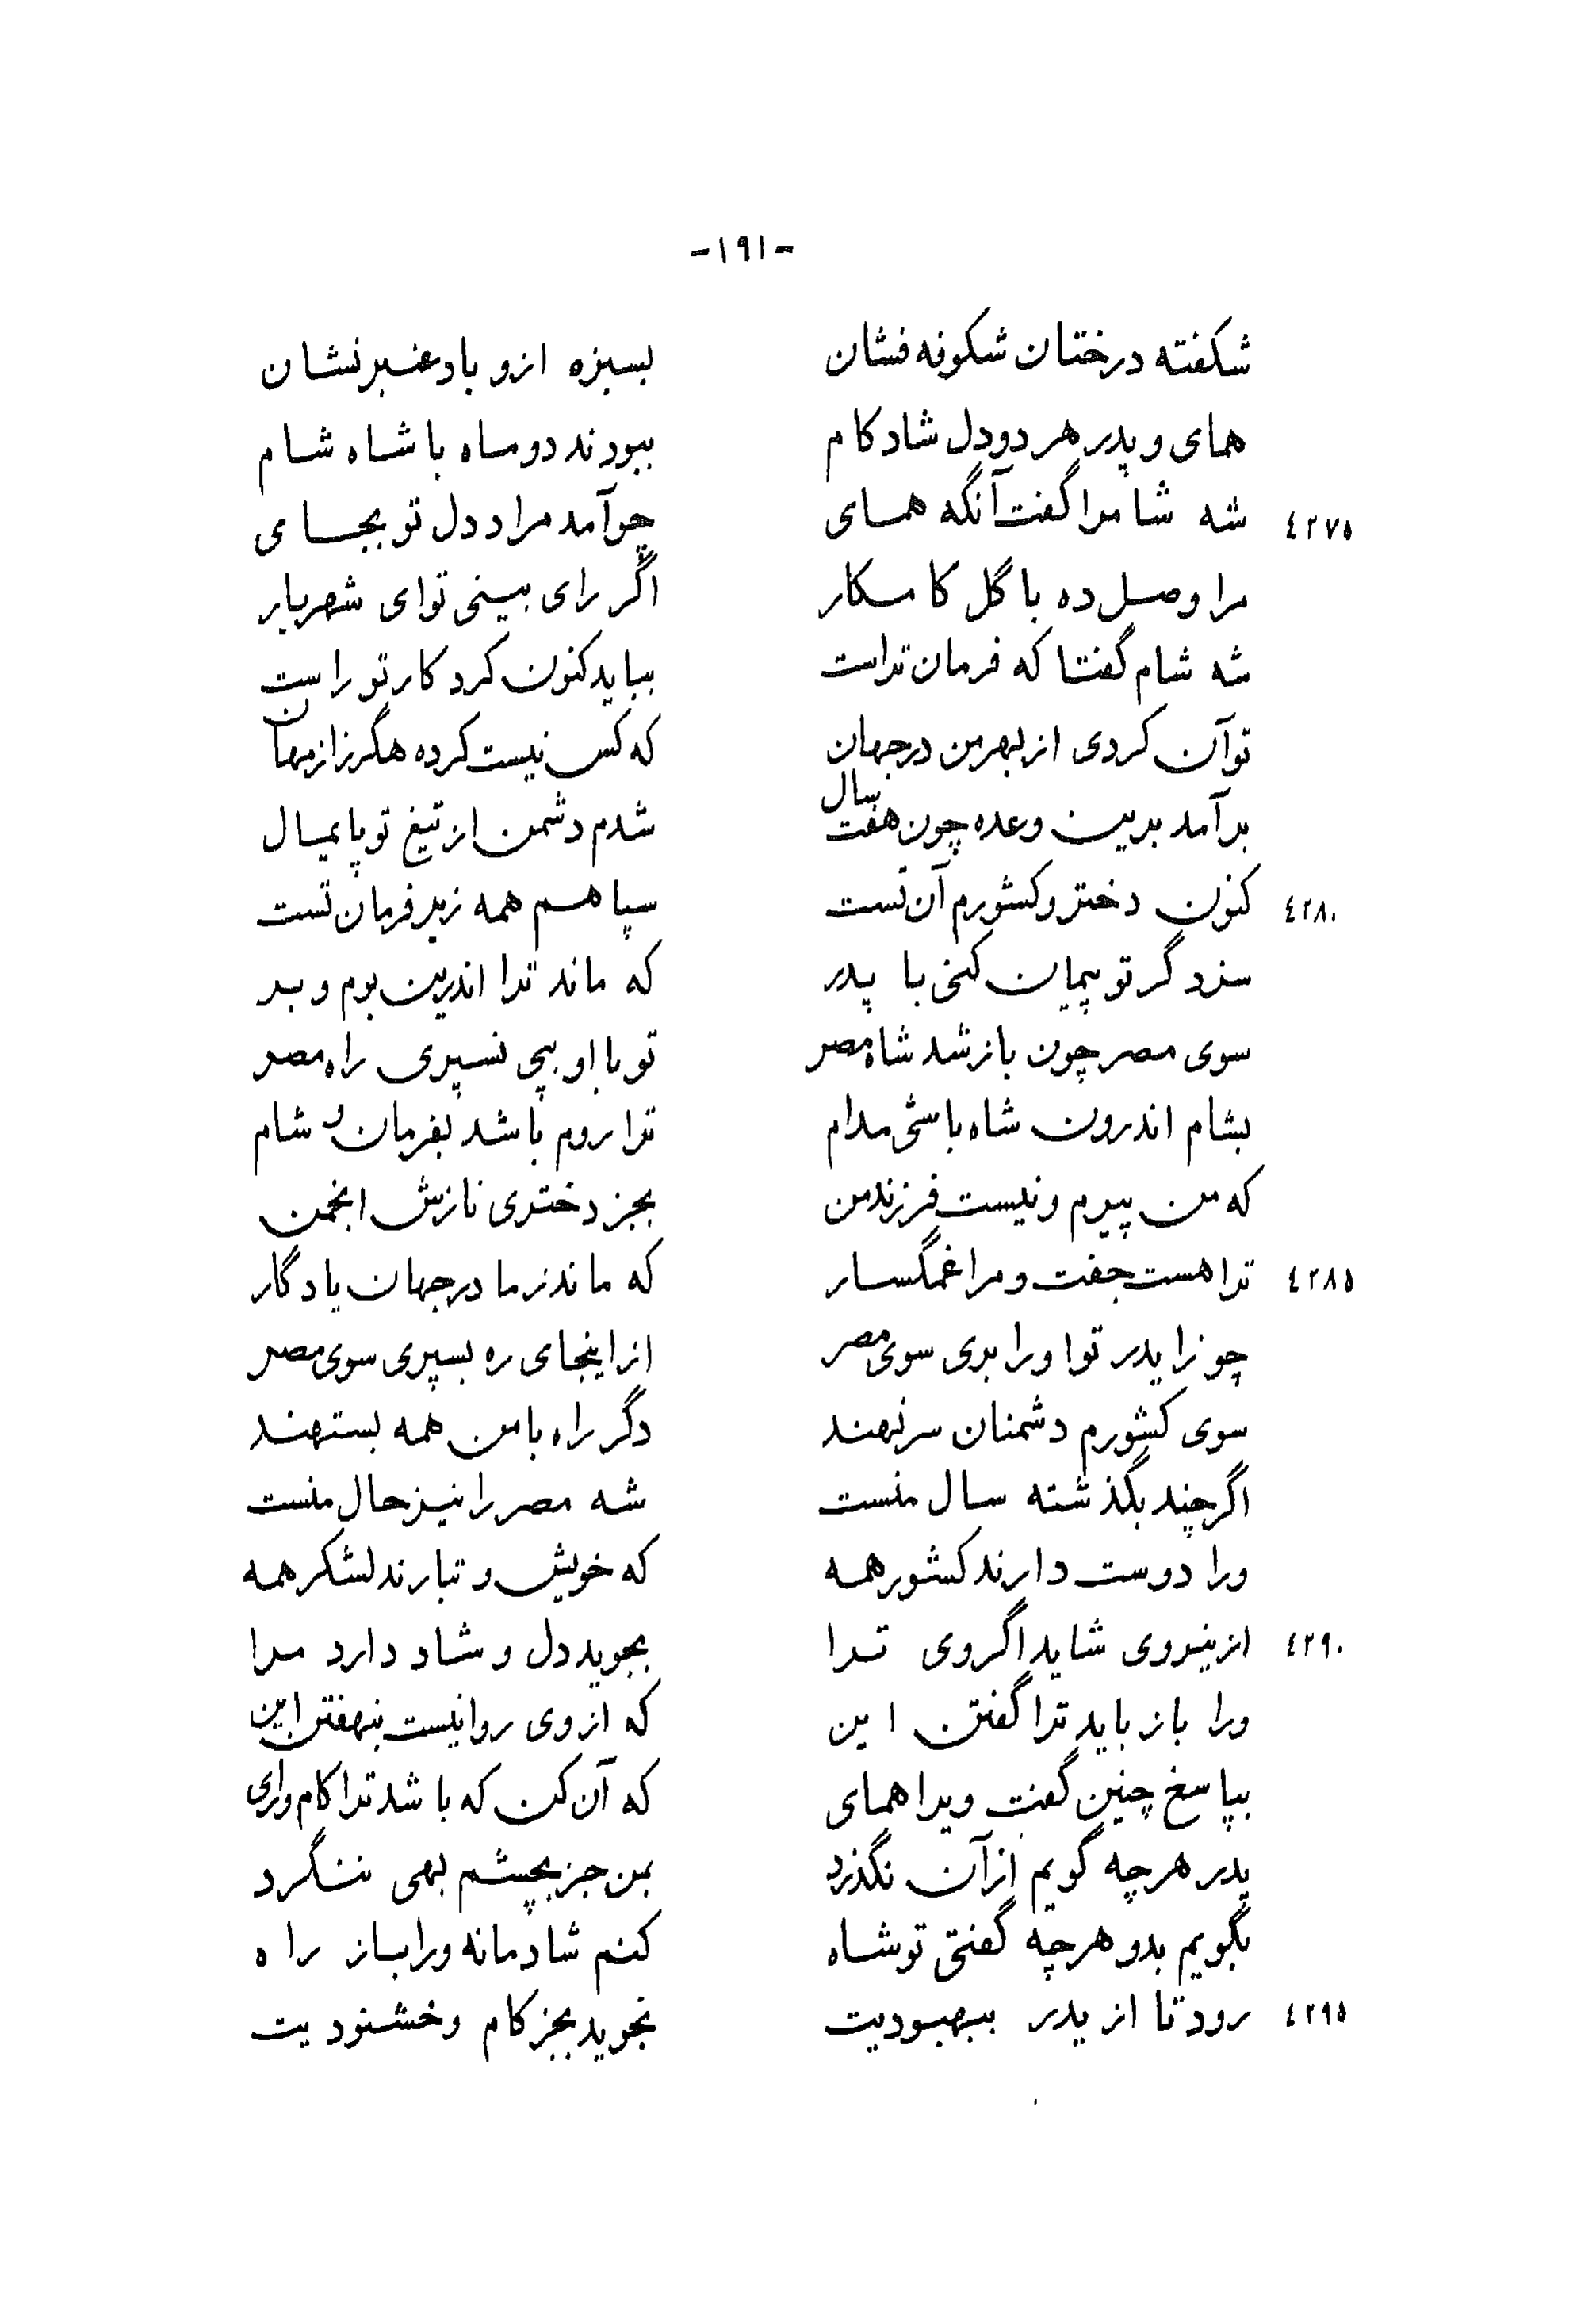 -۱۹۱-
شکفته درختان شکوفه فشان بسبزه ازو باد عنبر نشان
همای و پدر هر دو دل شادکام ببودند دو ماه با شاه شام
۴۲۷۵ شه شام را گفت آنگه همای چو آمد مراد دل تو بجای
مرا وصل ده با گل کامکار اگر رای بینی تو ای شهریار
شه شام گفتا که فرمان تراست بباید کنون کرد کار تو راست
تو آن کردی از بهر من در جهان که کس نیست کرده هگرز از مهان
برآمد برین وعده چون هفت سال شدم دشمن از تیغ تو پایمال
۴۲۸۰ کنون دختر و کشورم آن تست سپاهم همه زیر فرمان تست
سزد گر تو پیمان کنی با پدر که ماند ترا اندرین بوم و بر
سوی مصر چون باز شد شاه مصر تو با او پی نسپری راه مصر
بشام اندرون شاه باشی مدام ترا روم باشد بفرمان و شام
که من پیرم و نیست فرزند من بجز دختری نازش انجمن
۴۲۸۵ ترا هست جفت و مرا غمگسار که ماند ز ما در جهان یادگار
چو زایدر تو او را بری سوی مصر از اینجای ره بسپری سوی مصر
سوی کشورم دشمنان سر نهند دگر راه با من همه بستهند
اگر چند بگذشته سال منست شه مصر را نیز حال منست
ورا دوست دارند کشور همه که خویش و تبارند لشکر همه
۴۲۹۰ ازینروی شاید اگر وی ترا بجوید دل و شاد دارد مرا
ورا باز باید ترا گفتن این که از وی روا نیست بنهفتن این
بپاسخ چنین گفت ویرا همای که آن کن که باشد ترا کام و رای
پدر هر چه گویم از آن نگذرد بمن جز بچشم بهی ننگرد
بگویم بدو هر چه گفتی تو شاه کنم شادمانه ورا باز راه
۴۲۹۵ رود تا از پدر ببهبودیت نجوید بجز کام و خشنودیت